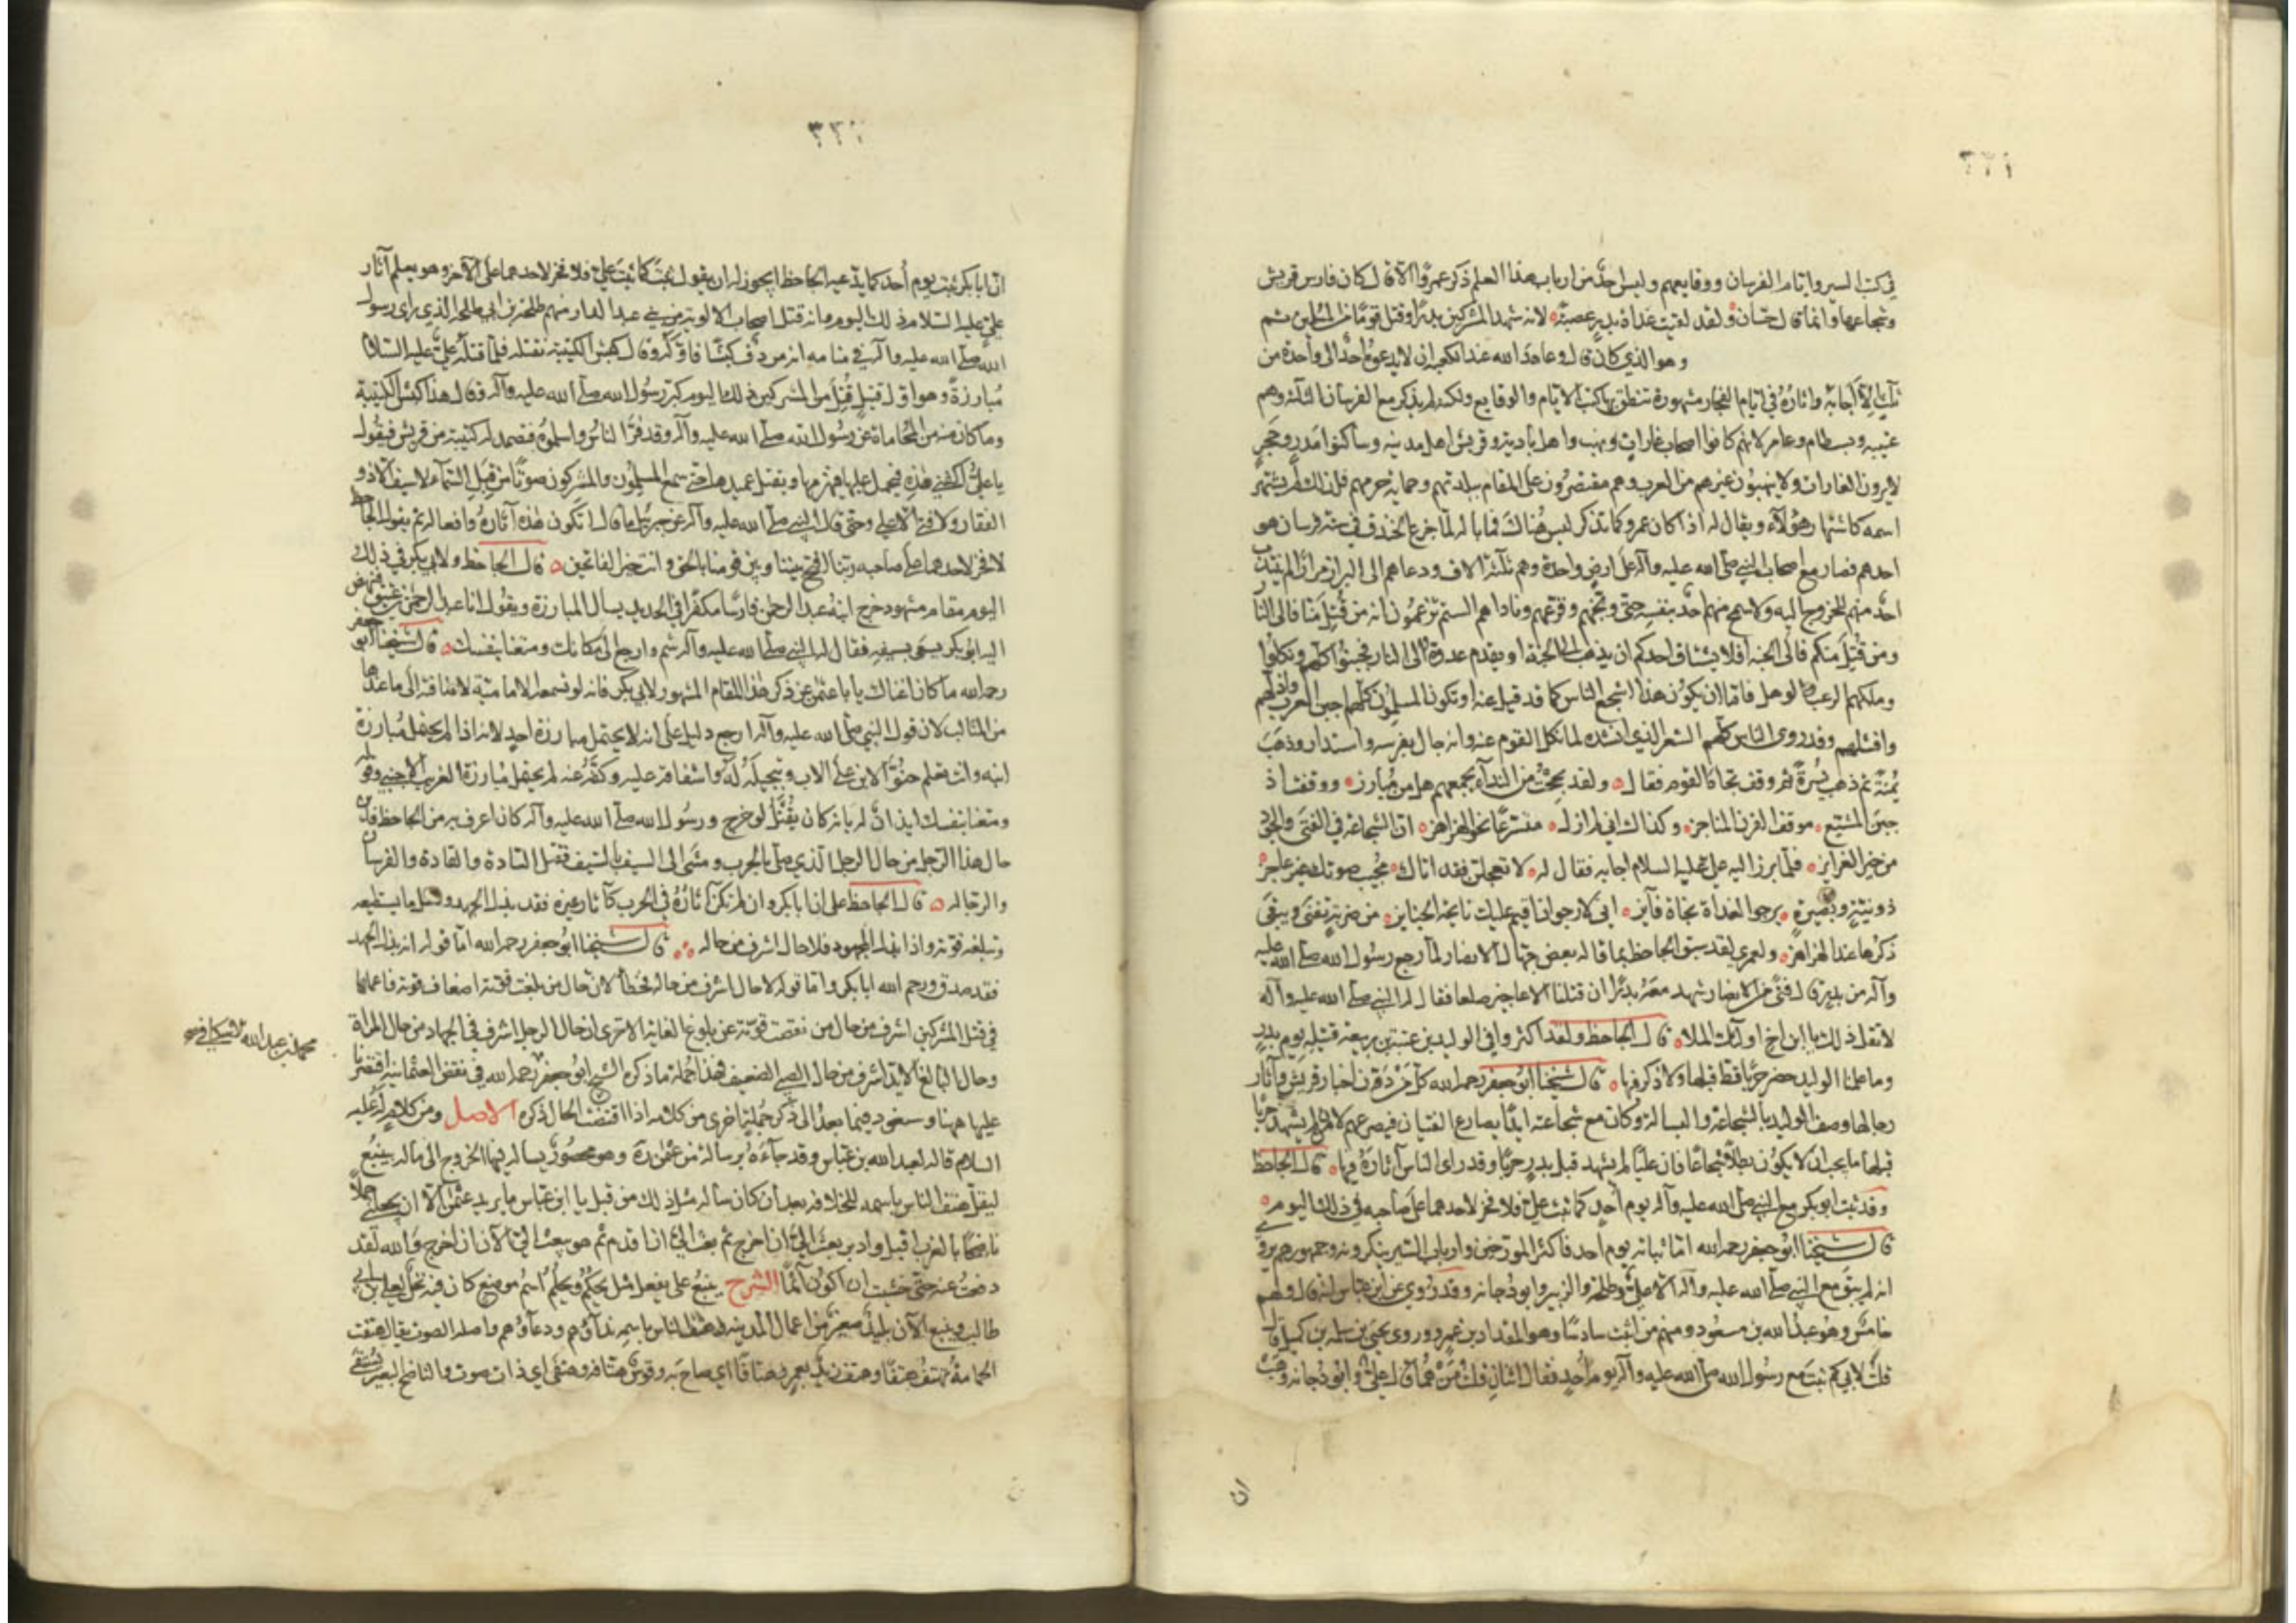 ٣٣١
في كتب السير وايام الفرسان ووقايعهم وليس احد من ارباب هذا العلم ذكر عمروا الا قال كان فارس قريش
وشجاعها وانما قال حسان ولقد لقيت غداة بدر عصبة لانه شهد مع المشركين بدرا وقتل قوما من المسلمين ثم
وهو الذي كان قال وعاهد الله عند الكعبه ان لا يدعوه احد الى واحدة من
ثلث الا اجابه واثاره في ايام الفجار مشهورة تنطق بها كتب الايام والوقايع ولكنه لم يذكر مع الفرسان الثلثة وهم
عتيبه وبسطام وعامر لانهم كانوا اصحاب غارات ونهب واهل بادية وقريش اهل مدينه وساكنوا مدر وحجر
لا يرون الغارات ولا ينهبون غيرهم من العرب وهم مقتصرون على المقام ببلدتهم وحماية حرمهم فلذلك لم يشتهر
اسمه كاشتهار هؤلاء ويقال له اذا كان عمرو كما تذكر ليس هناك فما باله لما جزع الخندق في ستة فرسان هو
احدهم فصار مع اصحاب النبي صلى الله عليه وآله على ارض واحدة وهم ثلثة الاف ودعاهم الى البراز مرارا لم ينتدب
احد منهم للخروج اليه ولا سمح منهم احد بنفسه حتى وبخهم وقرعهم وناداهم الستم تزعمون انه من قتل منا فالى النار
ومن قتل منكم فالى الجنه افلا يشتاق احدكم ان يذهب الى الجنة او يقدم عدوه الى النار فجبنوا كلهم ونكلوا
وملكهم الرعب والوهل فاما ان يكون هذا اشجع الناس كما قد قيل عنه او تكون المسلمون كلهم اجبن العرب واذلهم
وافشلهم وقد روى الناس كلهم الشعر الذي انشده لما نكل القوم عنه وانه جال بفرسه واستدار وذهب
يمنة ثم ذهب يسرة ثم وقف تجاه القوم فقال ولقد بححت من النداء بجمعهم هل من مبارز ووقفت اذ
جبن المشيع موقف القرن المناجز وكذاك اني لم ازل متسرعا نحو الهزاهز ان الشجاعة في الفتى والجود
من خير الغرايز فلما برز اليه علي عليه السلام اجابه فقال له لا تعجلن فقد اتاك مجيب صوتك غير عاجز
ذو نية وبصيرة يرجوا الغداة نجاة فايز اني لارجو ان اقيم عليك نايحة الجنايز من ضربة تفنى ويبقى
ذكرها عند الهزاهز ولعمري لقد سبق الجاحظ بما قاله بعض جهال الانصار لما رجع رسول الله صلى الله عليه
وآله من بدر قال فتى من الانصار شهد معه بدرا ان قتلنا الا عجايز صلعا فقال له النبي صلى الله عليه وآله
لا تقل ذلك يا ابن اخ اولئك الملا قال الجاحظ ولقد اكثروا في الوليد بن عتبة بن ربيعة قتيله يوم بدر
وما علمنا الوليد حضر حربا قط قبلها ولا ذكر فيها قال شيخنا ابو جعفر رحمه الله كل من دون اخبار قريش وآثار
رجالها وصف الوليد بالشجاعة والبسالة وكان مع شجاعته ايدا يصارع الفتيان فيصرعهم لانه لم يشهد حربا
قبلها ما يجب ان لا يكون بطلا شجاعا فان عليا لم يشهد قبل بدر حربا وقد راى الناس آثاره فيها قال الجاحظ
وقد ثبت ابو بكر مع النبي صلى الله عليه وآله يوم أحد كما ثبت علي فلا فخر لاحدهما على صاحبه في ذلك اليوم
قال شيخنا ابو جعفر رحمه الله اما ثباته يوم احد فاكثر المورخين وارباب السير ينكرونه وجمهورهم يروي
انه لم يبق مع النبي صلى الله عليه وآله الا علي وطلحة والزبير وابو دجانه وقد روي عن ابن عباس انه قال ولهم
خامس وهو عبد الله بن مسعود ومنهم من اثبت سادسا وهو المقداد بن عمرو وروى يحيى بن سلمه بن كهيل قال
قلت لابي كم ثبت مع رسول الله صلى الله عليه وآله يوم أحد فقال اثنان قلت من هما قال علي وابو دجانه وهب
ان
٣٣٢
ان ابا بكر ثبت يوم أحد كما يدعيه الجاحظ ايجوز له ان يقول ثبت كما ثبت علي فلا فخر لاحدهما على الآخر وهو يعلم آثار
علي عليه السلام ذلك اليوم وانه قتل اصحاب الالوية من بني عبد الدار منهم طلحة بن ابي طلحه الذي راى رسول
الله صلى الله عليه وآله في منامه انه مردف كبشا فاوله وقال كبش الكتيبة نقتله فلما قتله علي عليه السلام
مبارزة وهو اول قتيل قتل من المشركين ذلك اليوم كبر رسول الله صلى الله عليه وآله وقال هذا كبش الكتيبة
وما كان منه من المحاماة عن رسول الله صلى الله عليه وآله وقد فر الناس واسلموه فتصمد له كتيبة من قريش فيقول
يا علي اكفني هذه فيحمل عليها فيهزمها ويقتل عميدها حتى سمع المسلمون والمشركون صوتا من قبل السماء لا سيف الا ذو
الفقار ولا فتى الا علي وحتى قال النبي صلى الله عليه وآله عن جبرئيل ما قال اتكون هذه آثاره وافعاله ثم يقول الجاحظ
لا فخر لاحدهما على صاحبه ربنا افتح بيننا وبين قومنا بالحق وانت خير الفاتحين قال الجاحظ ولابي بكر في ذلك
اليوم مقام مشهود خرج ابنه عبد الرحمن فارسا مكفرا في الحديد يسال المبارزة ويقول انا عبد الرحمن بن عتيق فنهض
اليه ابو بكر يسعى بسيفه فقال له النبي صلى الله عليه وآله شم وارجع الى مكانك ومتعنا بنفسك قال شيخنا ابو جعفر
رحمه الله ما كان اغناك يا با عثمن عن ذكر هذا المقام المشهور لابي بكر فانه لو تسمعه الامامية لاضافته الى ما عندها
من المثالب لان قول النبي صلى الله عليه وآله ارجع دليل على انه لا يحتمل مبارزة احد لانه اذا لم يحتمل مبارزة
ابنه وانت تعلم حنو الابن على الاب وتبجيله له واشفاقه عليه وكفه عنه لم يحتمل مبارزة الغريب الاجنبي وقوله
ومتعنا بنفسك ايذان له بانه كان يقتل لو خرج ورسول الله صلى الله عليه وآله كان اعرف به من الجاحظ فاين
حال هذا الرجل من حال الرجل الذي صلي بالحرب ومشى الى السيف بالسيف فقتل السادة والقادة والفرسان
والرجاله قال الجاحظ على ان ابا بكر وان لم تكن آثاره في الحرب كآثار غيره فقد بذل الجهد وفعل ما يستطيعه
وتبلغه قوته واذا بذل المجهود فلا حال اشرف من حاله قال شيخنا ابو جعفر رحمه الله اما قوله انه بذل الجهد
فقد صدق ورحم الله ابا بكر واما قوله لا حال اشرف من حاله فخطأ لان حال من بلغت قوته اضعاف قوته فاعملها
في قتل المشركين اشرف من حال من نقصت قوته عن بلوغ الغاية الا ترى ان حال الرجل اشرف في الجهاد من حال المراة
وحال البالغ الايد اشرف من حال الصبي الضعيف فهذا جملة ما ذكره الشيخ ابو جعفر رحمه الله في نقض العثمانية اقتصرنا
محمد بن عبد الله الاسكافي
عليها ههنا وسنعود فيما بعد الى ذكر جملة اخرى من كلامه اذا اقتضت الحال ذكره الاصل ومن كلام له عليه
السلام قاله لعبد الله بن عباس وقد جاءه برسالة من عثمن وهو محصور يساله فيها الخروج الى ماله بينبع
ليقل هتف الناس باسمه للخلافة بعد ان كان ساله مثل ذلك من قبل يا ابن عباس ما يريد عثمن الا ان يجعلني جملا
ناضحا بالغرب اقبل وادبر بعث الي ان اخرج ثم بعث الي ان اقدم ثم هو يبعث الي الآن ان اخرج والله لقد
دفعت عنه حتى خشيت ان اكون آثما الشرح ينبع على يفعل مثل يحكم ويحلم اسم موضع كان فيه نخل لعلي بن ابي
طالب وينبع الآن بليد صغير من اعمال المدينة وهتف الناس باسمه نداؤهم ودعاؤهم واصله الصوت يقال هتفت
الحمامة تهتف هتفا وهتف زيد بعمرو هتافا اي صاح به وقوس هتافه وهتفى اي ذات صوت والناضح البعير يستقى